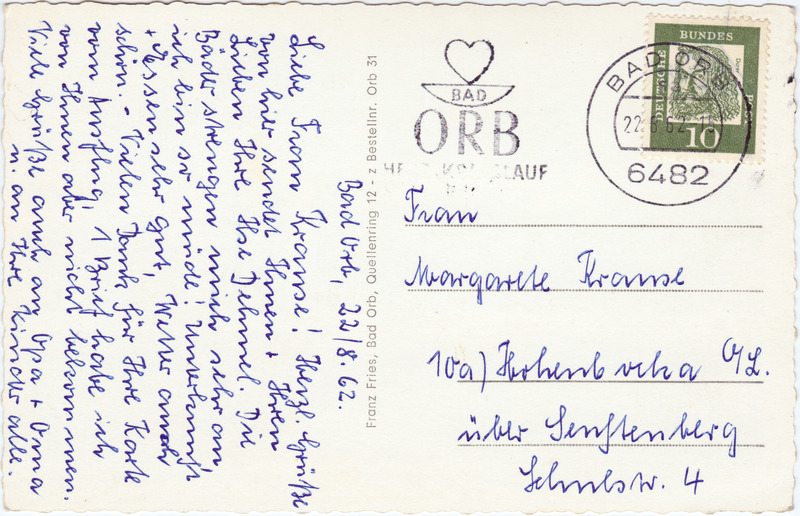 Bad Orb, 22/8.62.
Liebe Frau Krause! Herzl. Grüße
von hier sendet Ihnen + Ihren
Lieben Ihre Ilse Dehmel. Die
Bäder strengen mich sehr an
ich bin so müde! Unterkunft
+ Essen sehr gut, Wetter auch
schön. - Vielen Dank für Ihre Karte
vom Ausflug, 1 Brief habe ich
von Ihnen aber nicht bekommen.
Viele Grüße auch an Opa + Oma
u. an Ihre Kinder alle.
Franz Fries, Bad Orb, Quellenring 12 - z Bestellnr. Orb 31
BAD
ORB
BAD ORB
22.8.62
6482
DEUTSCHE BUNDES
10
Frau
Margarete Krause
10a) Hohenbocka O/L.
über Senftenberg
Schulstr. 4